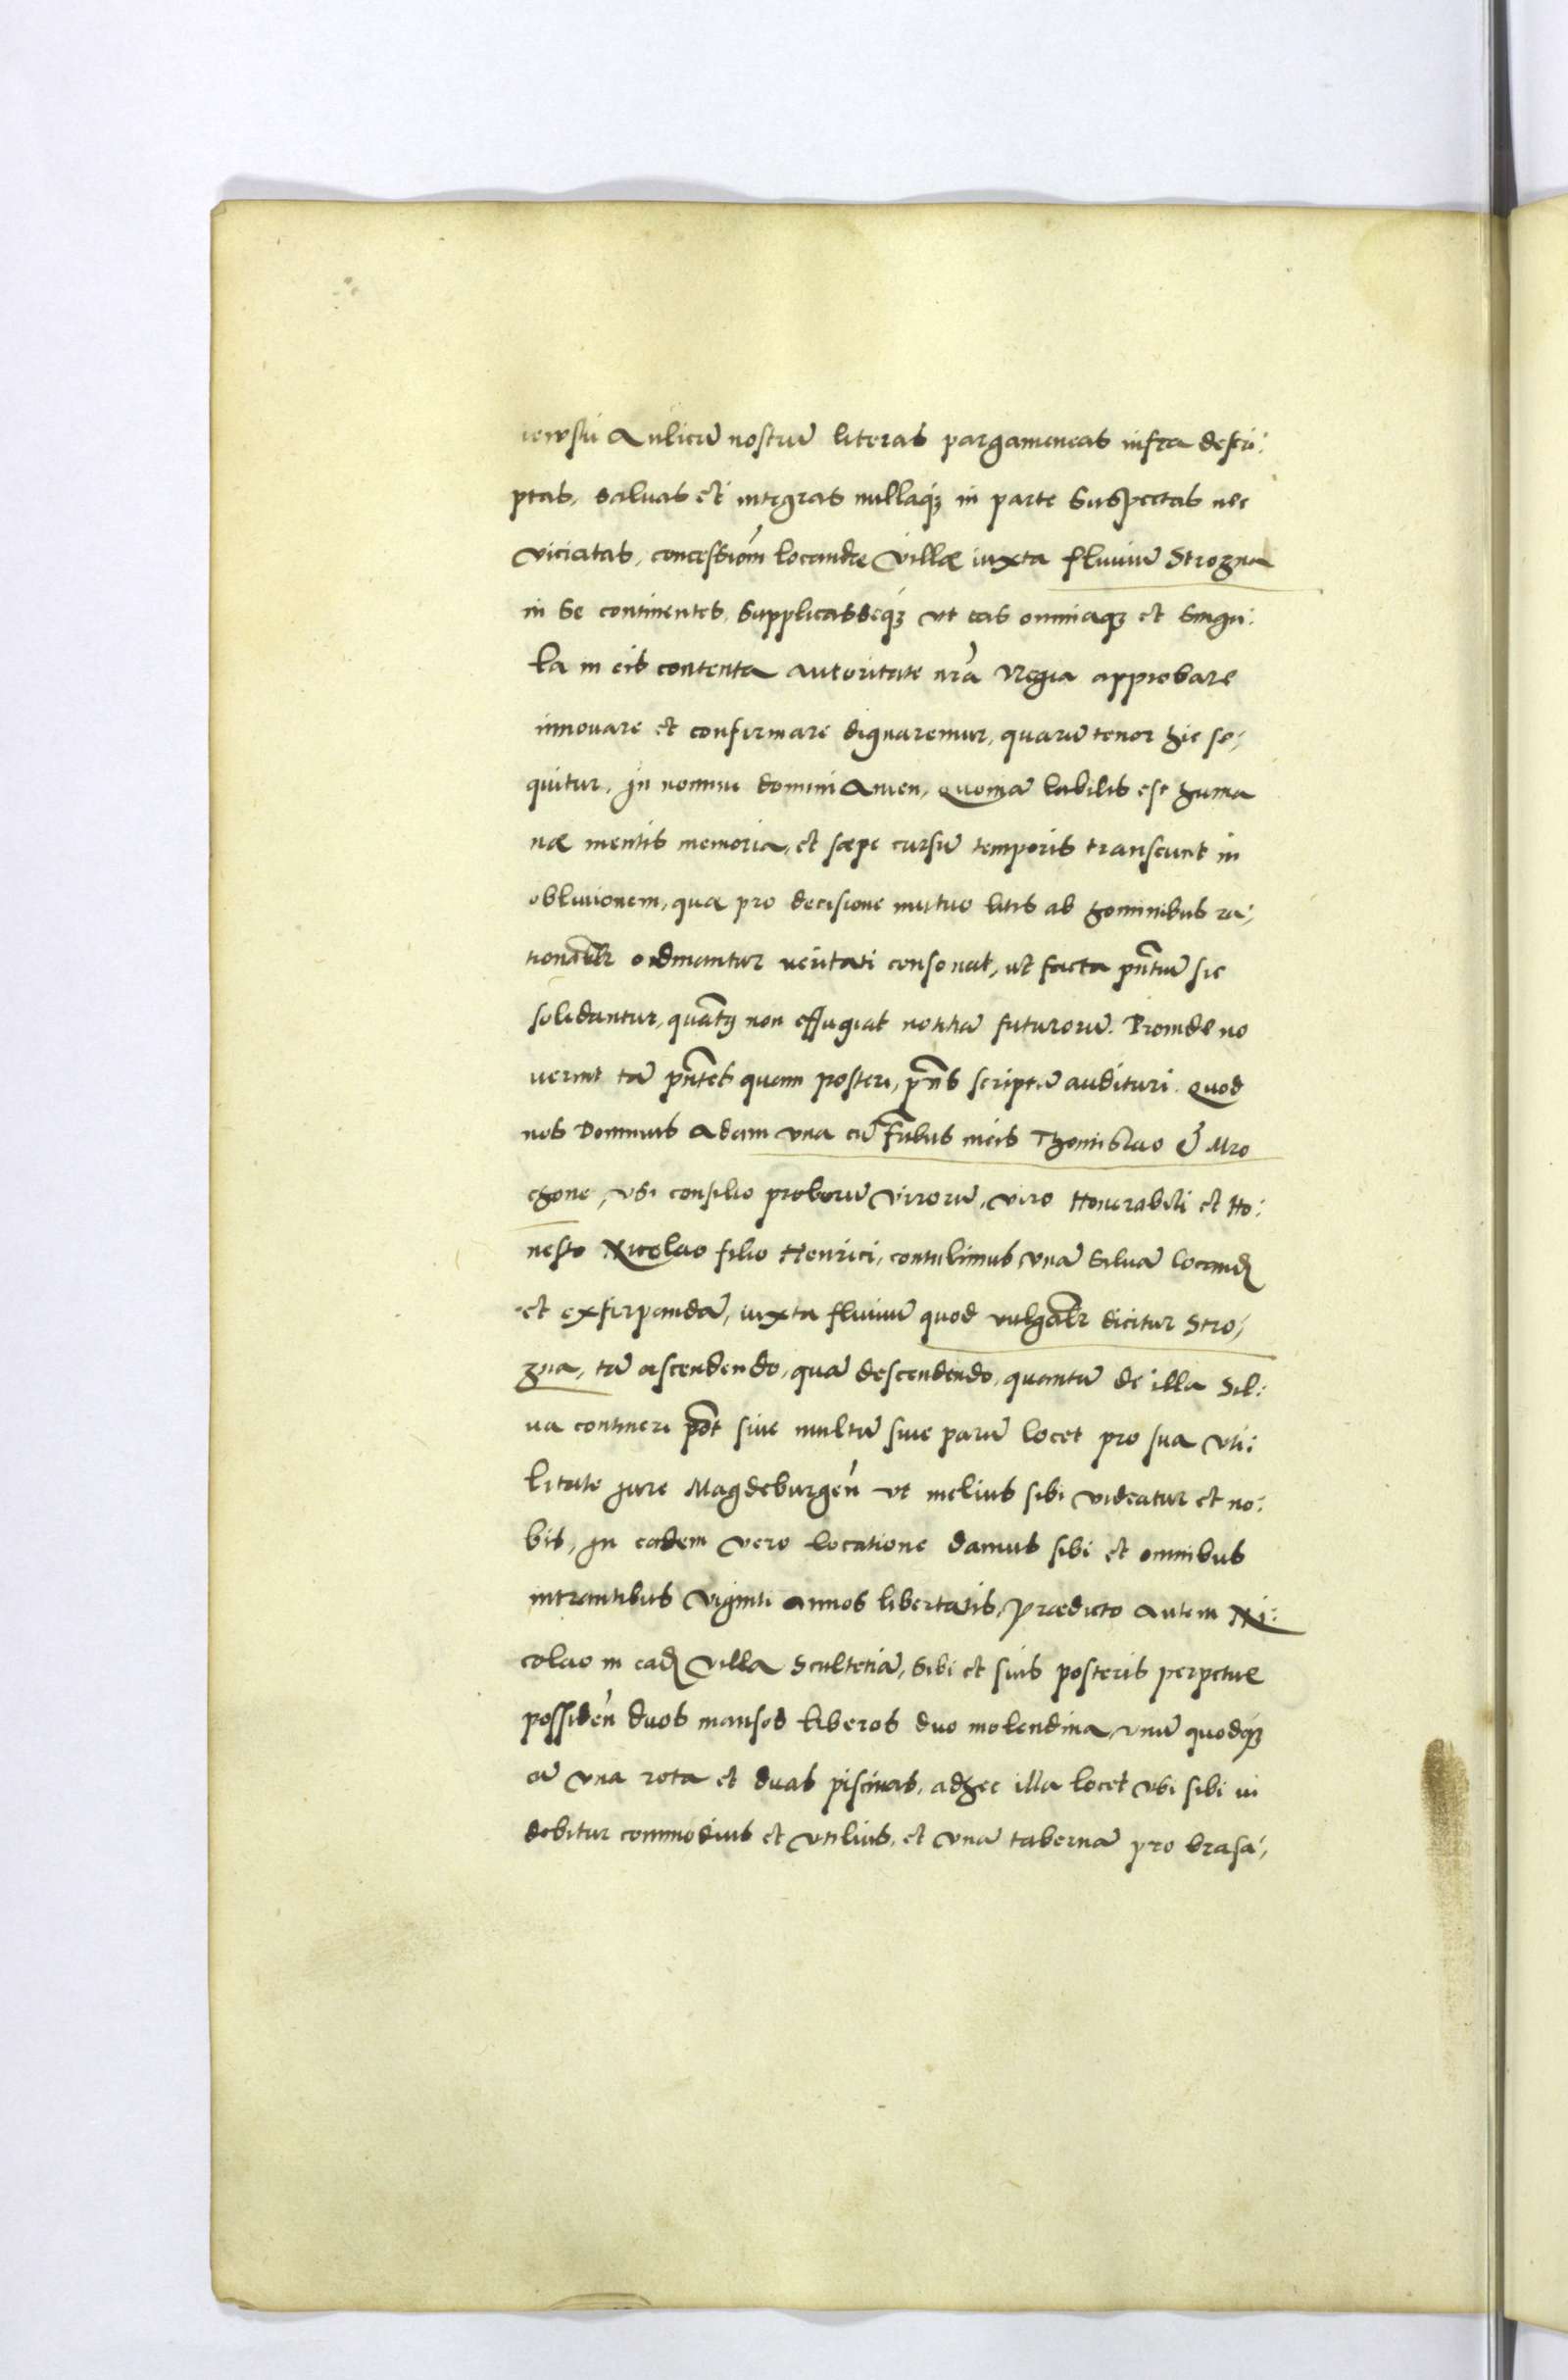 iewski Aulicū nostrū literas pargameneas infra descri:
ptas, saluas et integras nullaqꝫ in parte suspectas nec
viciatas, concessiom̄ locandæ villæ iuxta fluuiū Strozna
in se continentes, supplicasseqꝫ vt eas omniaqꝫ et singu:
la in eis contenta autoritate nr̄a Regia approbare
innouare et confirmare dignaremur, quarū tenor hic se,
quitur. In nomine domini Amen, Quoniā labilis est huma
næ mentis memoria, et sæpe cursū temporis transeunt in
obliuionem, quæ pro decisione mutuo litis ab hominibus ra,
tionabl̄r ordinantur ueritati consonat, ut facta pn̄tiū sic
solidantur, quātꝰ non effugiat notitiā futurorū. Proinde no
uerint tā pn̄tes quam posteri, pn̄s scriptū audituri. Quod
nos Dominus Adam vna cū fr̄ibus meis Thomislao & Mro
czone, vsi consilio proborū virorū, viro Honorabili et Ho:
nesto Nicolao filio Henrici, contulimus vnā siluā locand̄
et exfirpandā, iuxta fluuiū quod uulgarl̄r dicitur Stro,
zna, tā ascendendo, quā descendendo, quantū de illa Sil:
ua contineri pōt siue multū siue parū locet pro sua vti:
litate jure Magdeburgen̄ vt melius sibi videatur et no:
bis, In eadem vero locatione damus sibi et omnibus
intrantibus viginti annos libertatis, Prædicto autem Ni:
colao in ead̄ villa Scultetiā, sibi et suis posteris perpetue
possiden̄ duos mansos liberos duo molendina, vnū quodqꝫ
cū vna rota et duas piscinas, adhec illa locet vbi sibi ui
debitur commodius et vtilius, et vnā tabernā pro brasa,